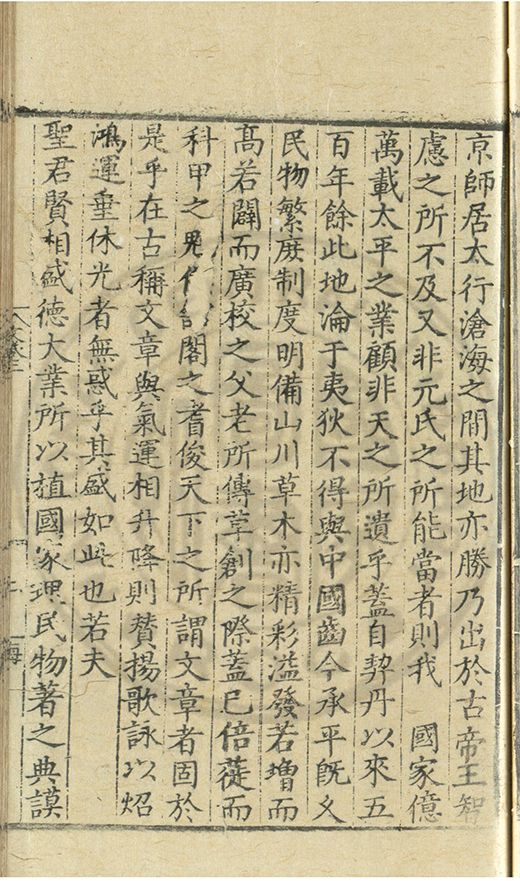 京師居太行滄海之間其地亦勝乃出於古帝王智
慮之所不及又非元氏之所能當者則我　國家億
萬載太平之業顧非天之所遺乎蓋自契丹以來五
百年餘此地淪于夷狄不得與中國齒今承平旣久
民物繁庶制度明備山川草木亦精彩溢發若增而
高若闢而廣校之父老所傳草創之際蓋已倍蓰而
科甲之 閣之耆俊天下之所謂文章者固於
是乎在古稱文章與氣運相升降則贊揚歌詠以炤
鴻運垂休光者無惑乎其盛如此也若夫
聖君賢相盛德大業所以植國家理民物著之典謨